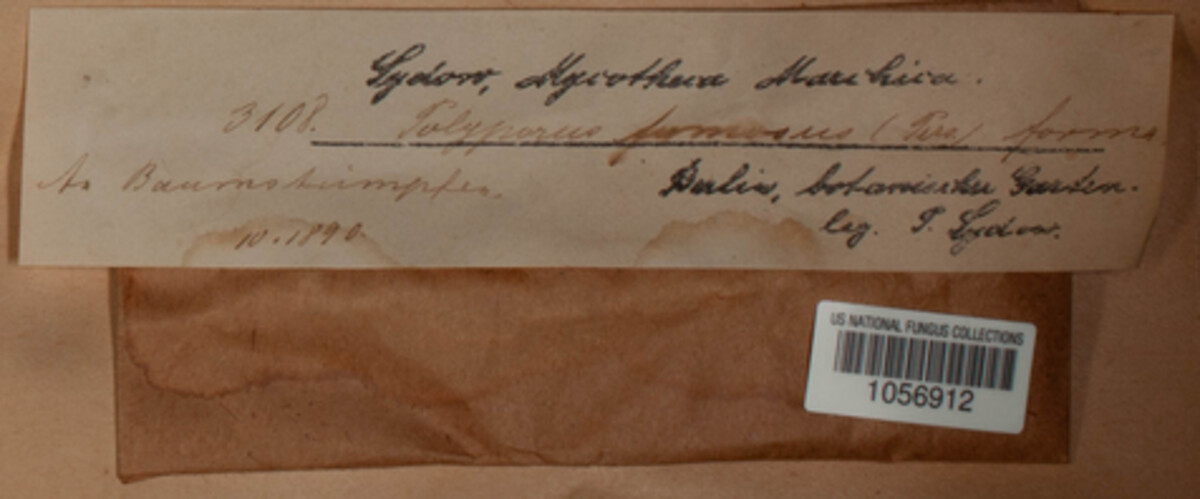 Sydow, Mycotheca Marchica.
3108. Polyporus fumosus (Pers) forma
An Baumstümpfen.
Berlin, botanischer Garten.
10.1890
leg. P. Sydow.
US NATIONAL FUNGUS COLLECTIONS
1056912